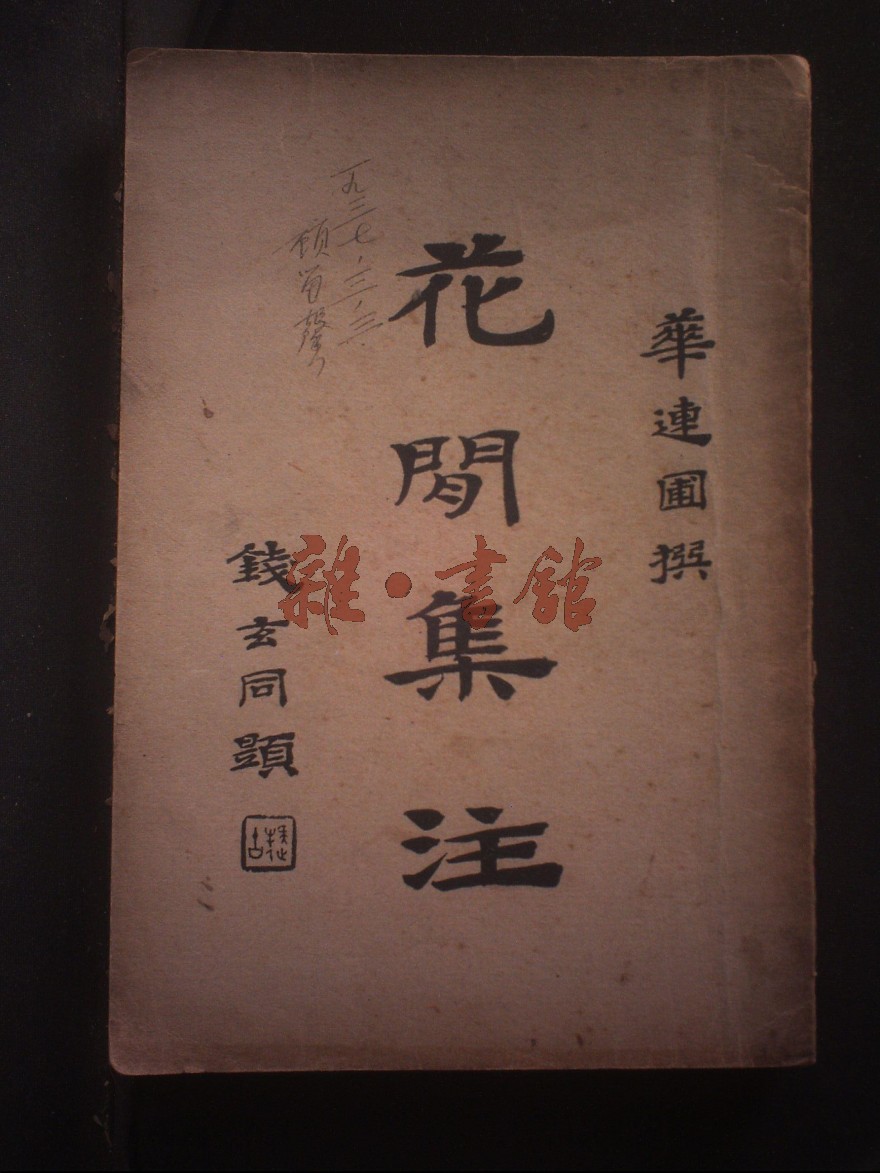 華連圃撰
花間集注
一九三七、三、三、
錢玄同題
雜·書館